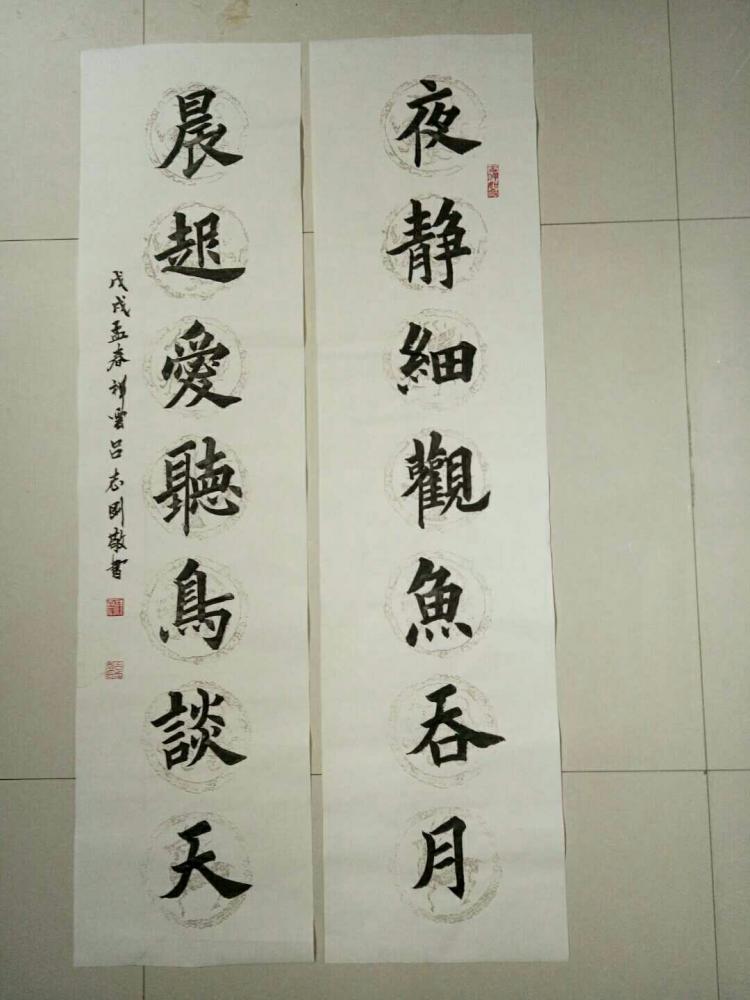 夜静細觀魚吞月
晨起愛聽鳥談天
戊戌孟春祥雲呂志剛敬書